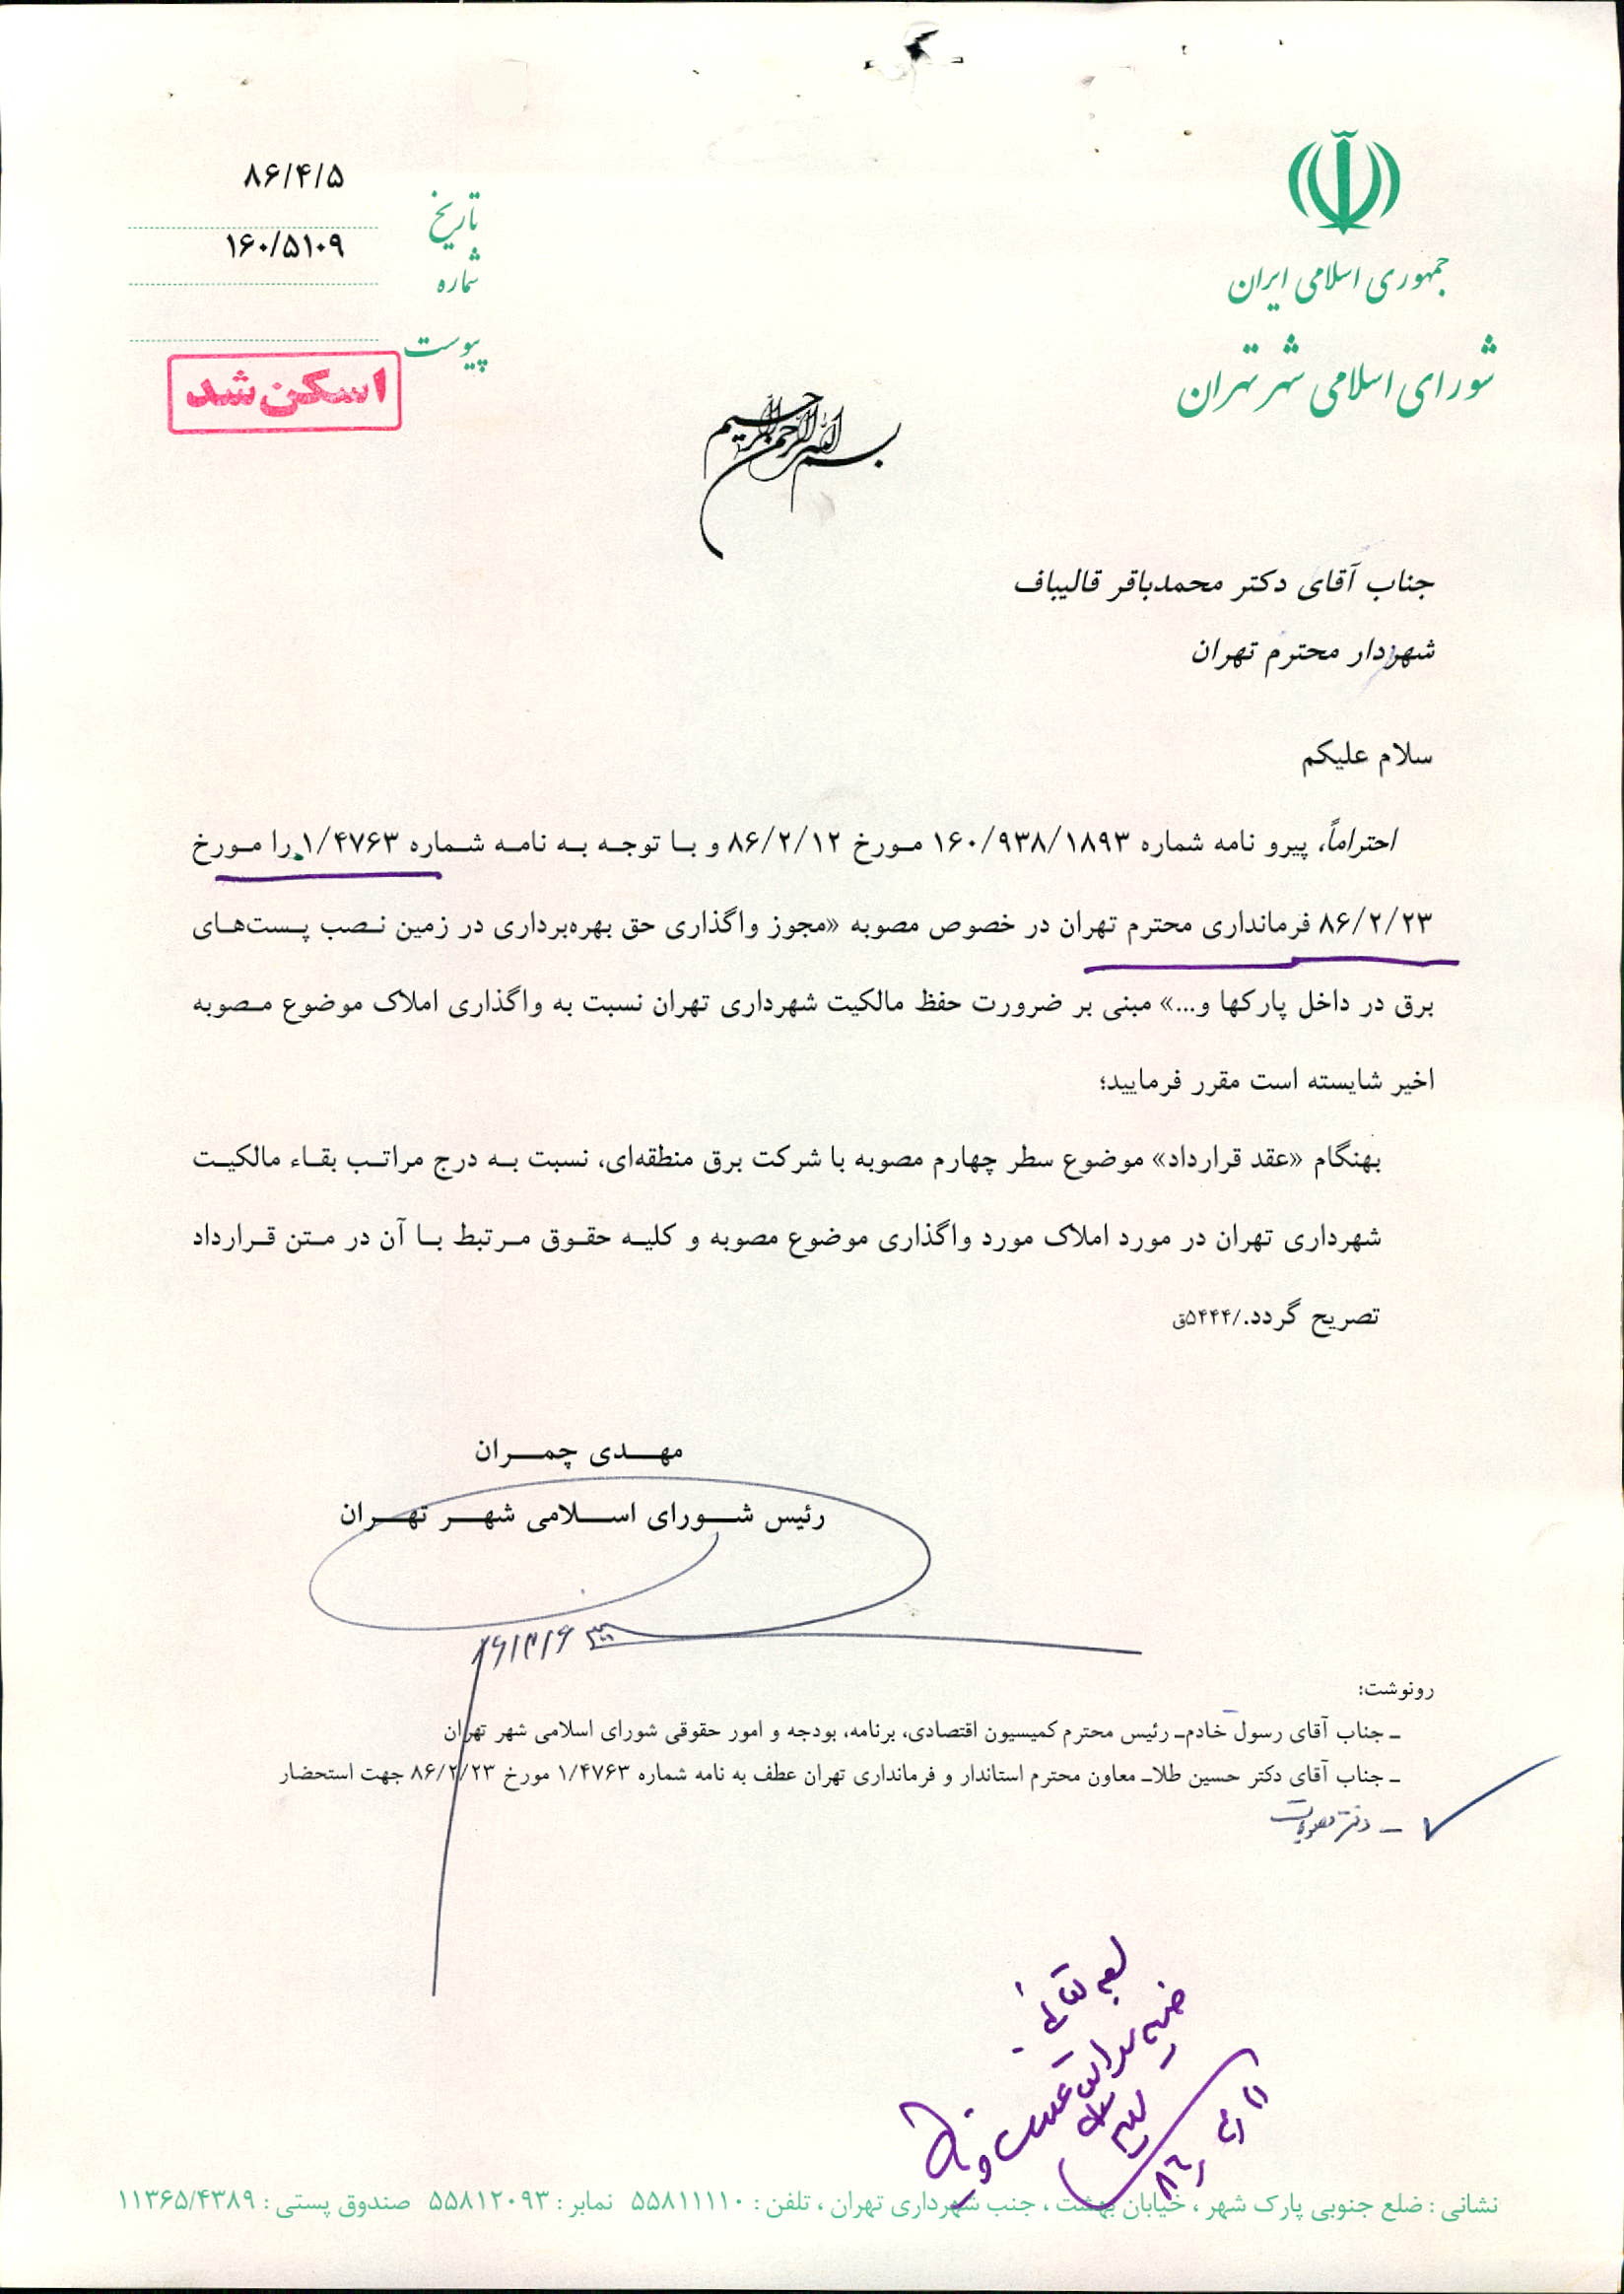 جمهوری اسلامی ایران
شورای اسلامی شهر تهران
۸۶/۴/۵
تاریخ
۱۶۰/۵۱۰۹
شماره
پیوست
اسکن شد
بسم الله الرحمن الرحیم
جناب آقای دکتر محمدباقر قالیباف
شهردار محترم تهران
سلام علیکم
احتراماً، پیرو نامه شماره ۱۶۰/۹۳۸/۱۸۹۳ مورخ ۸۶/۲/۱۲ و با توجه به نامه شماره ۱/۴۷۶۳ را مورخ
۸۶/۲/۲۳ فرمانداری محترم تهران در خصوص مصوبه «مجوز واگذاری حق بهره‌برداری در زمین نصب پست‌های
برق در داخل پارکها و...» مبنی بر ضرورت حفظ مالکیت شهرداری تهران نسبت به واگذاری املاک موضوع مصوبه
اخیر شایسته است مقرر فرمایید؛
بهنگام «عقد قرارداد» موضوع سطر چهارم مصوبه با شرکت برق منطقه‌ای، نسبت به درج مراتب بقاء مالکیت
شهرداری تهران در مورد املاک مورد واگذاری موضوع مصوبه و کلیه حقوق مرتبط با آن در متن قرارداد
تصریح گردد./۵۴۴۴ق
مهدی چمران
رئیس شورای اسلامی شهر تهران
رونوشت:
ـ جناب آقای رسول خادم ـ رئیس محترم کمیسیون اقتصادی، برنامه، بودجه و امور حقوقی شورای اسلامی شهر تهران
ـ جناب آقای دکتر حسین طلا ـ معاون محترم استاندار و فرمانداری تهران عطف به نامه شماره ۱/۴۷۶۳ مورخ ۸۶/۲/۲۳ جهت استحضار
ـ دفتر مصوبات
نشانی : ضلع جنوبی پارک شهر ، خیابان بهشت ، جنب شهرداری تهران ، تلفن : ۵۵۸۱۱۱۱۰ نمابر : ۵۵۸۱۲۰۹۳ صندوق پستی : ۱۱۳۶۵/۴۳۸۹